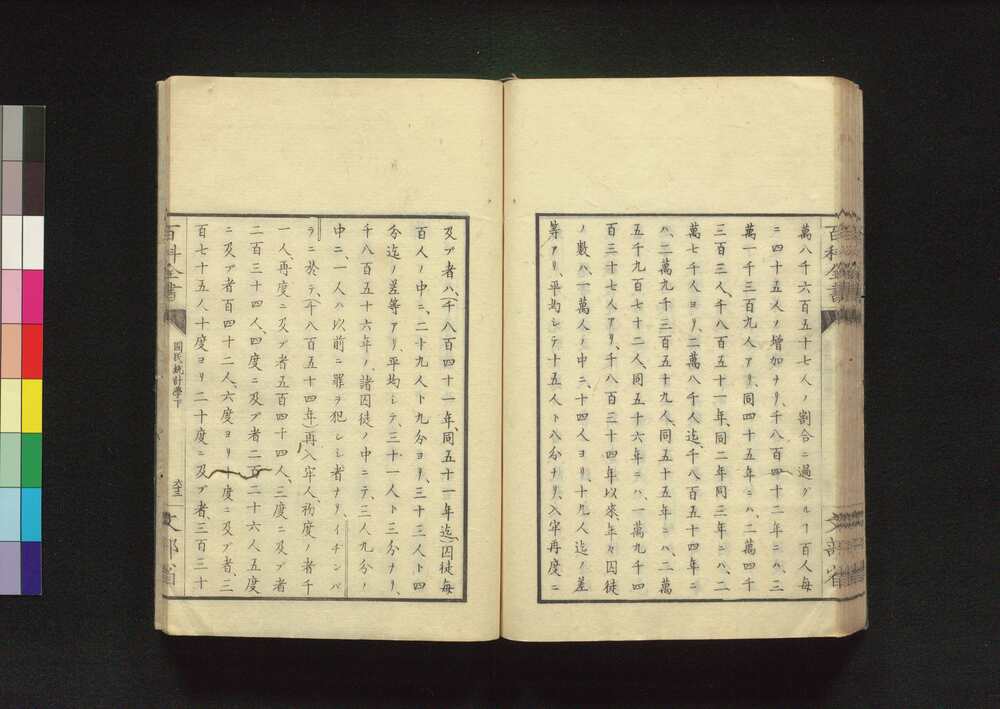 萬八千六百五十七人ノ割合ニ過グルヿ百人每
ニ四十五人ノ增加ナリ、千八百四十二年ニハ、三
萬一千三百九人アリ、同四十五年ニハ、二萬四千
三百三人、千八百五十一年、同二年同三年ニハ、二
萬七千人ヨリ、二萬八千人迄、千八百五十四年ニ
ハ、二萬九千三百五十九人、同五十五年ニハ、二萬
五千九百七十二人、同五十六年ニハ、一萬九千四
百三十七人アリ、千八百三十四年以來、年々囚徒
ノ數ハ、一萬人ノ中ニ、十四人ヨリ、十九人迄ノ差
等アリ、平均シテ十五人ト八分ナリ、入牢再度ニ
百科全書
文部省
及ブ者ハ、(千八百四十一年、同五十一年迄)囚徒每
百人ノ中ニ、二十九人ト九分ヨリ、三十三人ト四
分迄ノ差等アリ、平均シテ、三十一人ト三分ナリ、
千八百五十六年ノ諸囚徒ノ中ニテ、三人九分ノ
中ニ、一人ハ以前ニ罪ヲ犯シシ者ナリ、イヂンバ
ラニ於テ、(千八百五十四年)再入牢人、初度ノ者千
一人、再度ニ及ブ者五百四十四人、三度ニ及ブ者
二百三十四人、四度ニ及ブ者二百二十六人、五度
ニ及ブ者百四十二人、六度ヨリ十度ニ及ブ者、三
百七十五人十度ヨリ二十度ニ及ブ者、三百三十
百科全書
國民統計學下
文部省